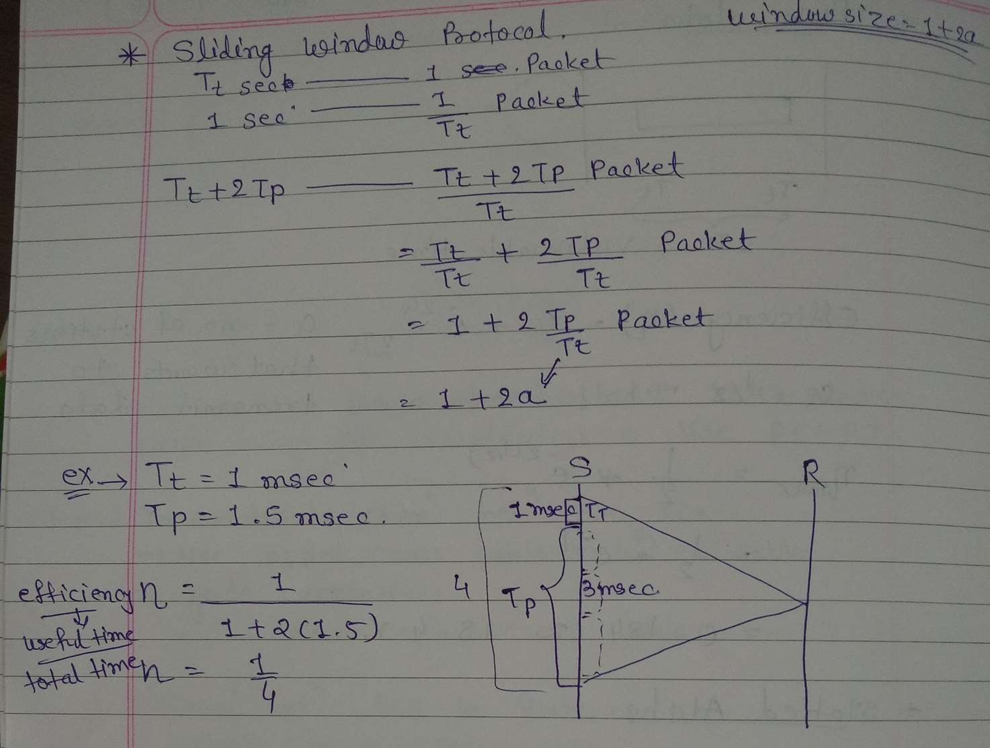 window size = 1+2a
* Sliding window Protocol.
Tt sec — 1 sec. Packet
1 sec — 1/Tt Packet
Tt + 2Tp — (Tt + 2Tp)/Tt Packet
= Tt/Tt + 2Tp/Tt Packet
= 1 + 2 Tp/Tt Packet
= 1 + 2a
ex → Tt = 1 msec
Tp = 1.5 msec.
efficiency η = 1/(1+2(1.5))
useful time
total time η = 1/4
S R
1 msec TT
4 Tp 3 msec